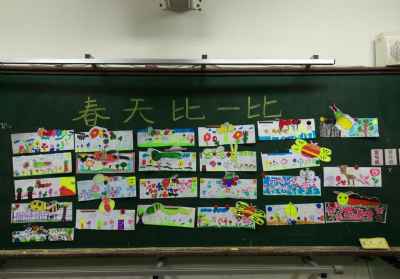 春天比一比